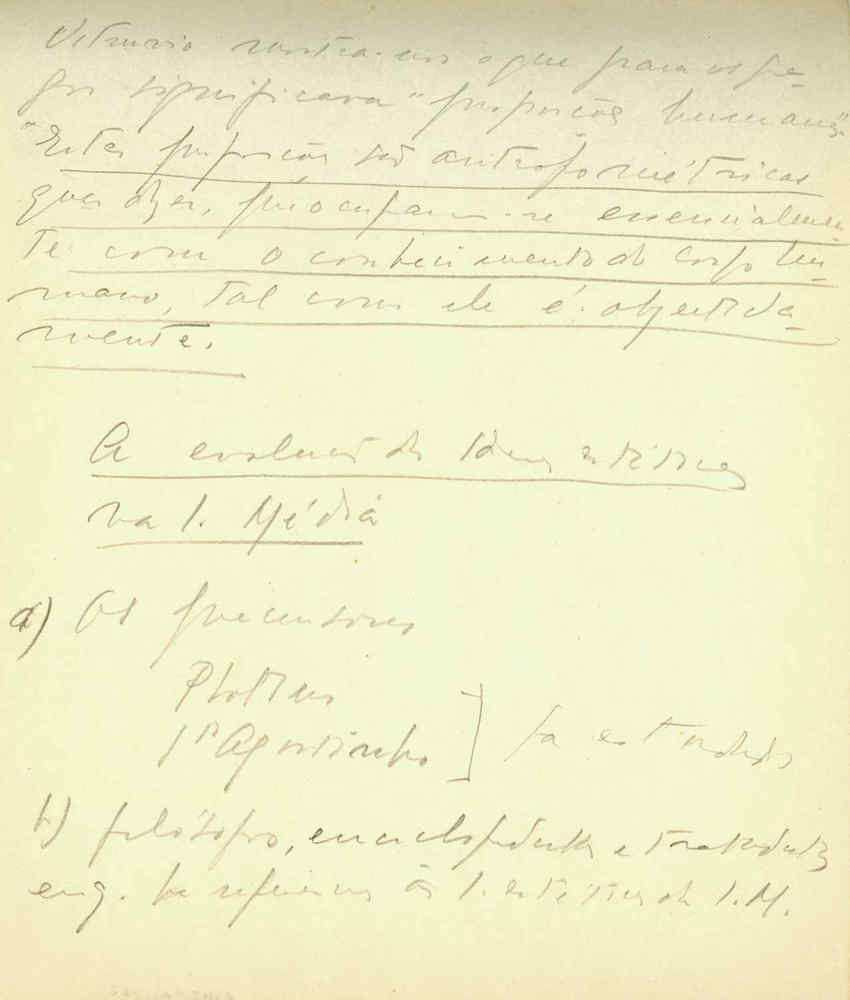 Vitruvio mostra-nos o que para os gre-
gos significava "proporções humanas".
"Estas proporções são antropométricas
quer dizer, preocupam-se essencialmen-
te com o conhecimento do corpo hu-
mano, tal como ele é objectiva-
mente.
A evolução das ideias estéticas
na I. Média
a) Os precursores
Plotino
Sto Agostinho ] já estudados
b) filósofos, enciclopedistas e tratadistas
em q. se referem às I. estéticas da I.M.